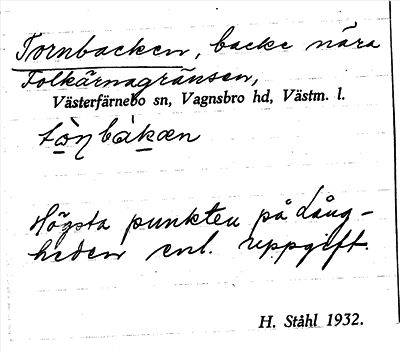 Tornbacken, backe nära
Folkärnagränsen,
Västerfärnebo sn, Vagnsbro hd, Västm. l.
Högsta punkten på Lång-
heden enl. uppgift.
H. Ståhl 1932.